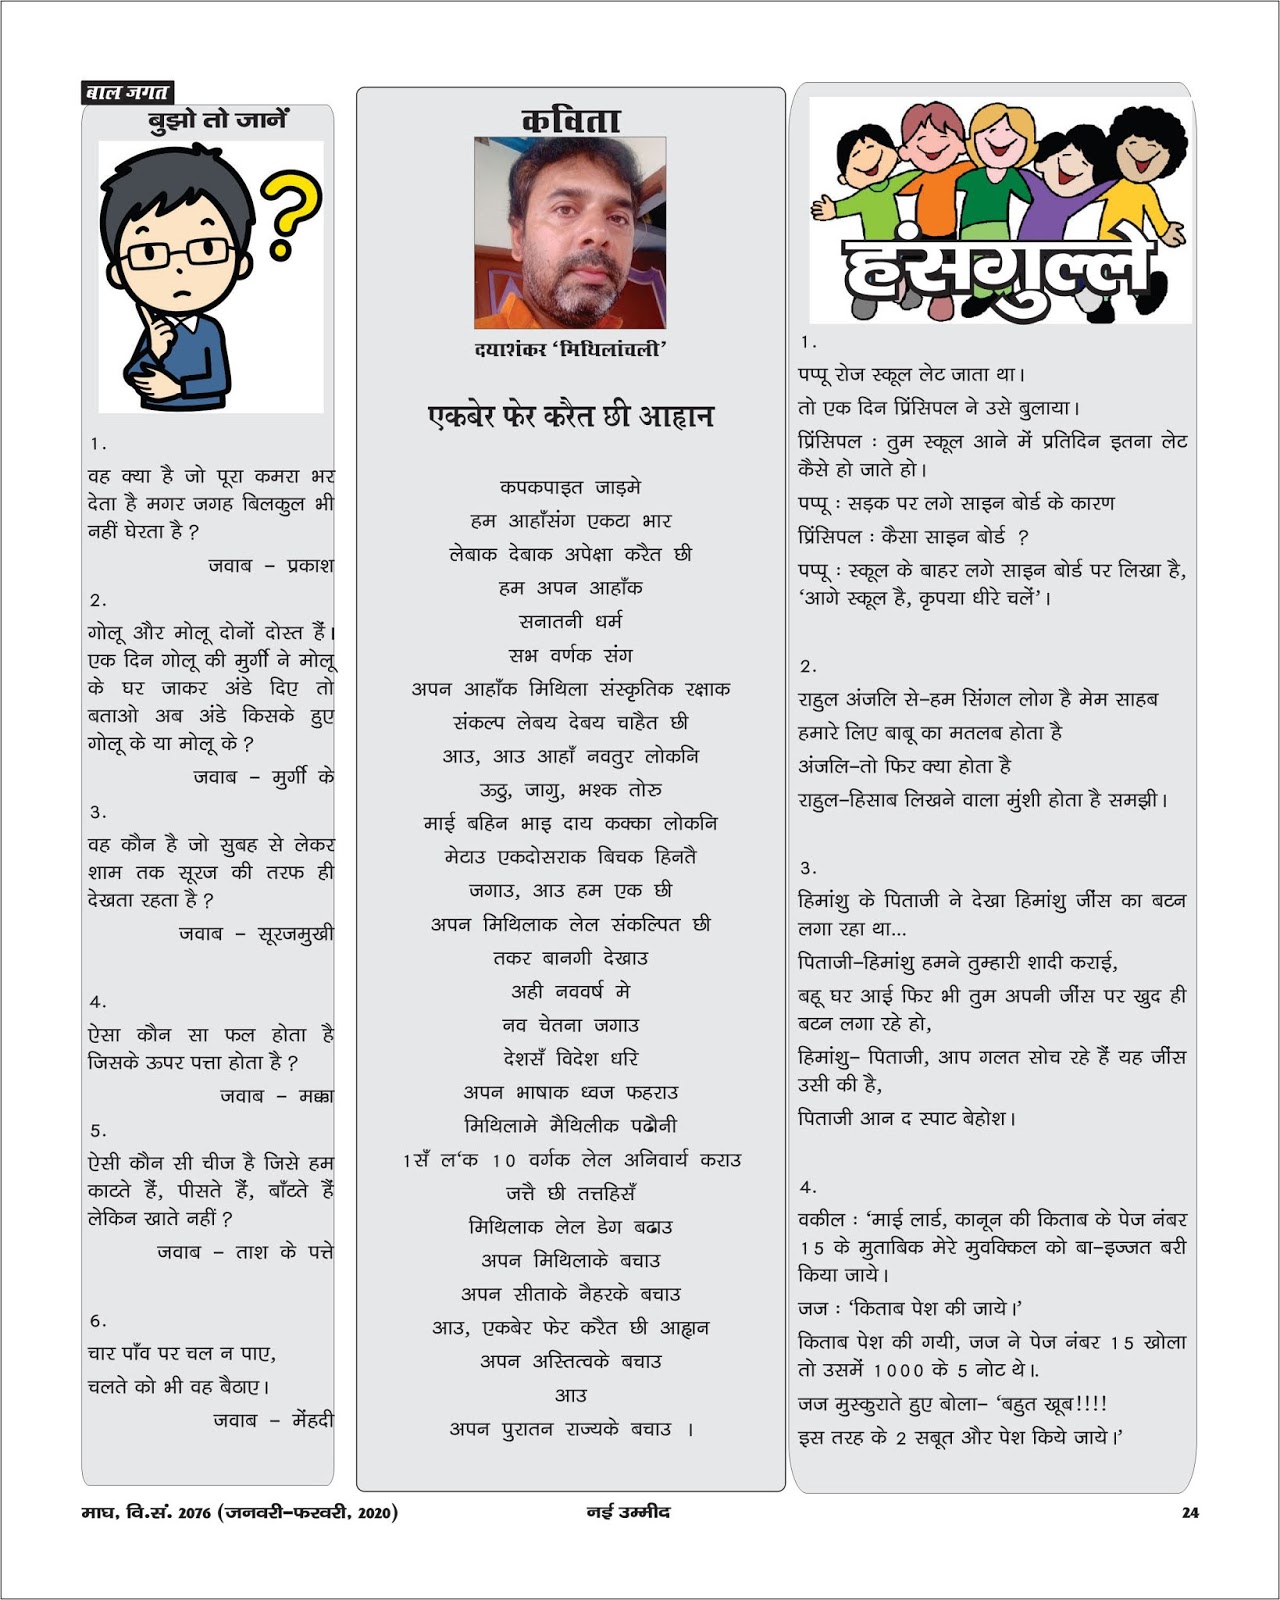 बाल जगत
बुझो तो जानें
1.
वह क्या है जो पूरा कमरा भर
देता है मगर जगह बिलकुल भी
नहीं घेरता है ?
जवाब – प्रकाश
2.
गोलू और मोलू दोनों दोस्त हैं।
एक दिन गोलू की मुर्गी ने मोलू
के घर जाकर अंडे दिए तो
बताओ अब अंडे किसके हुए
गोलू के या मोलू के ?
जवाब – मुर्गी के
3.
वह कौन है जो सुबह से लेकर
शाम तक सूरज की तरफ ही
देखता रहता है ?
जवाब – सूरजमुखी
4.
ऐसा कौन सा फल होता है
जिसके ऊपर पत्ता होता है ?
जवाब – मक्का
5.
ऐसी कौन सी चीज है जिसे हम
काटते हैं, पीसते हैं, बाँटते हैं
लेकिन खाते नहीं ?
जवाब – ताश के पत्ते
6.
चार पाँव पर चल न पाए,
चलते को भी वह बैठाए।
जवाब – मेंहदी
कविता
दयाशंकर ‘मिथिलांचली’
एकबेर फेर करैत छी आह्वान
कपकपाइत जाड़मे
हम आहाँसंग एकटा भार
लेबाक देबाक अपेक्षा करैत छी
हम अपन आहाँक
सनातनी धर्म
सभ वर्णक संग
अपन आहाँक मिथिला संस्कृतिक रक्षाक
संकल्प लेबय देबय चाहैत छी
आउ, आउ आहाँ नवतुर लोकनि
ऊठु, जागु, भश्क तोरु
माई बहिन भाइ दाय कक्का लोकनि
मेटाउ एकदोसराक बिचक हिनतै
जगाउ, आउ हम एक छी
अपन मिथिलाक लेल संकल्पित छी
तकर बानगी देखाउ
अही नववर्ष मे
नव चेतना जगाउ
देशसँ विदेश धरि
अपन भाषाक ध्वज फहराउ
मिथिलामे मैथिलीक पढौनी
1सँ ल‘क 10 वर्गक लेल अनिवार्य कराउ
जत्तै छी तत्तहिसँ
मिथिलाक लेल डेग बढाउ
अपन मिथिलाके बचाउ
अपन सीताके नैहरके बचाउ
आउ, एकबेर फेर करैत छी आह्वान
अपन अस्तित्वके बचाउ
आउ
अपन पुरातन राज्यके बचाउ ।
हंसगुल्ले
1.
पप्पू रोज स्कूल लेट जाता था।
तो एक दिन प्रिंसिपल ने उसे बुलाया।
प्रिंसिपल : तुम स्कूल आने में प्रतिदिन इतना लेट
कैसे हो जाते हो।
पप्पू : सड़क पर लगे साइन बोर्ड के कारण
प्रिंसिपल : कैसा साइन बोर्ड ?
पप्पू : स्कूल के बाहर लगे साइन बोर्ड पर लिखा है,
‘आगे स्कूल है, कृपया धीरे चलें’।
2.
राहुल अंजलि से–हम सिंगल लोग है मेम साहब
हमारे लिए बाबू का मतलब होता है
अंजलि–तो फिर क्या होता है
राहुल–हिसाब लिखने वाला मुंशी होता है समझी।
3.
हिमांशु के पिताजी ने देखा हिमांशु जींस का बटन
लगा रहा था...
पिताजी–हिमांशु हमने तुम्हारी शादी कराई,
बहू घर आई फिर भी तुम अपनी जींस पर खुद ही
बटन लगा रहे हो,
हिमांशु– पिताजी, आप गलत सोच रहे हैं यह जींस
उसी की है,
पिताजी आन द स्पाट बेहोश।
4.
वकील : ‘माई लार्ड, कानून की किताब के पेज नंबर
15 के मुताबिक मेरे मुवक्किल को बा–इज्जत बरी
किया जाये।
जज : ‘किताब पेश की जाये।’
किताब पेश की गयी, जज ने पेज नंबर 15 खोला
तो उसमें 1000 के 5 नोट थे।.
जज मुस्कुराते हुए बोला– ‘बहुत खूब!!!!
इस तरह के 2 सबूत और पेश किये जाये।’
माघ, वि.सं. 2076 (जनवरी–फरवरी, 2020)
नई उम्मीद
24